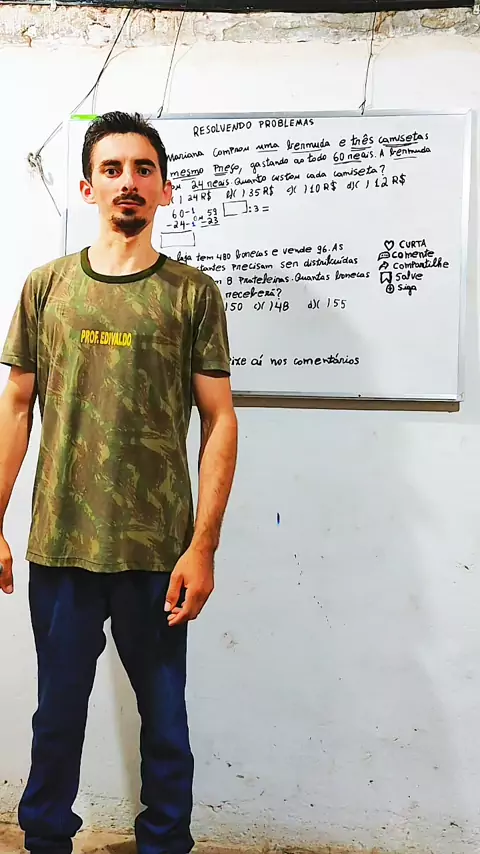 RESOLVENDO PROBLEMAS
Mariana comprou uma bermuda e três camisetas
mesmo preço, gastando ao todo 60 reais. A bermuda
24 reais. Quanto custou cada camiseta?
( ) 24 R$ b) ( ) 35 R$ c) ( ) 10 R$ d) ( ) 12 R$
60-1 59
:3=
-24-1 -23
loja tem 480 bonecas e vende 96. As
precisam ser distribuídas
8 prateleiras. Quantas bonecas
receberá?
150 c) ( ) 48 d) ( ) 55
aí nos comentários
CURTA
Comente
Compartilhe
Salve
Siga
PROF. EDIVALDO